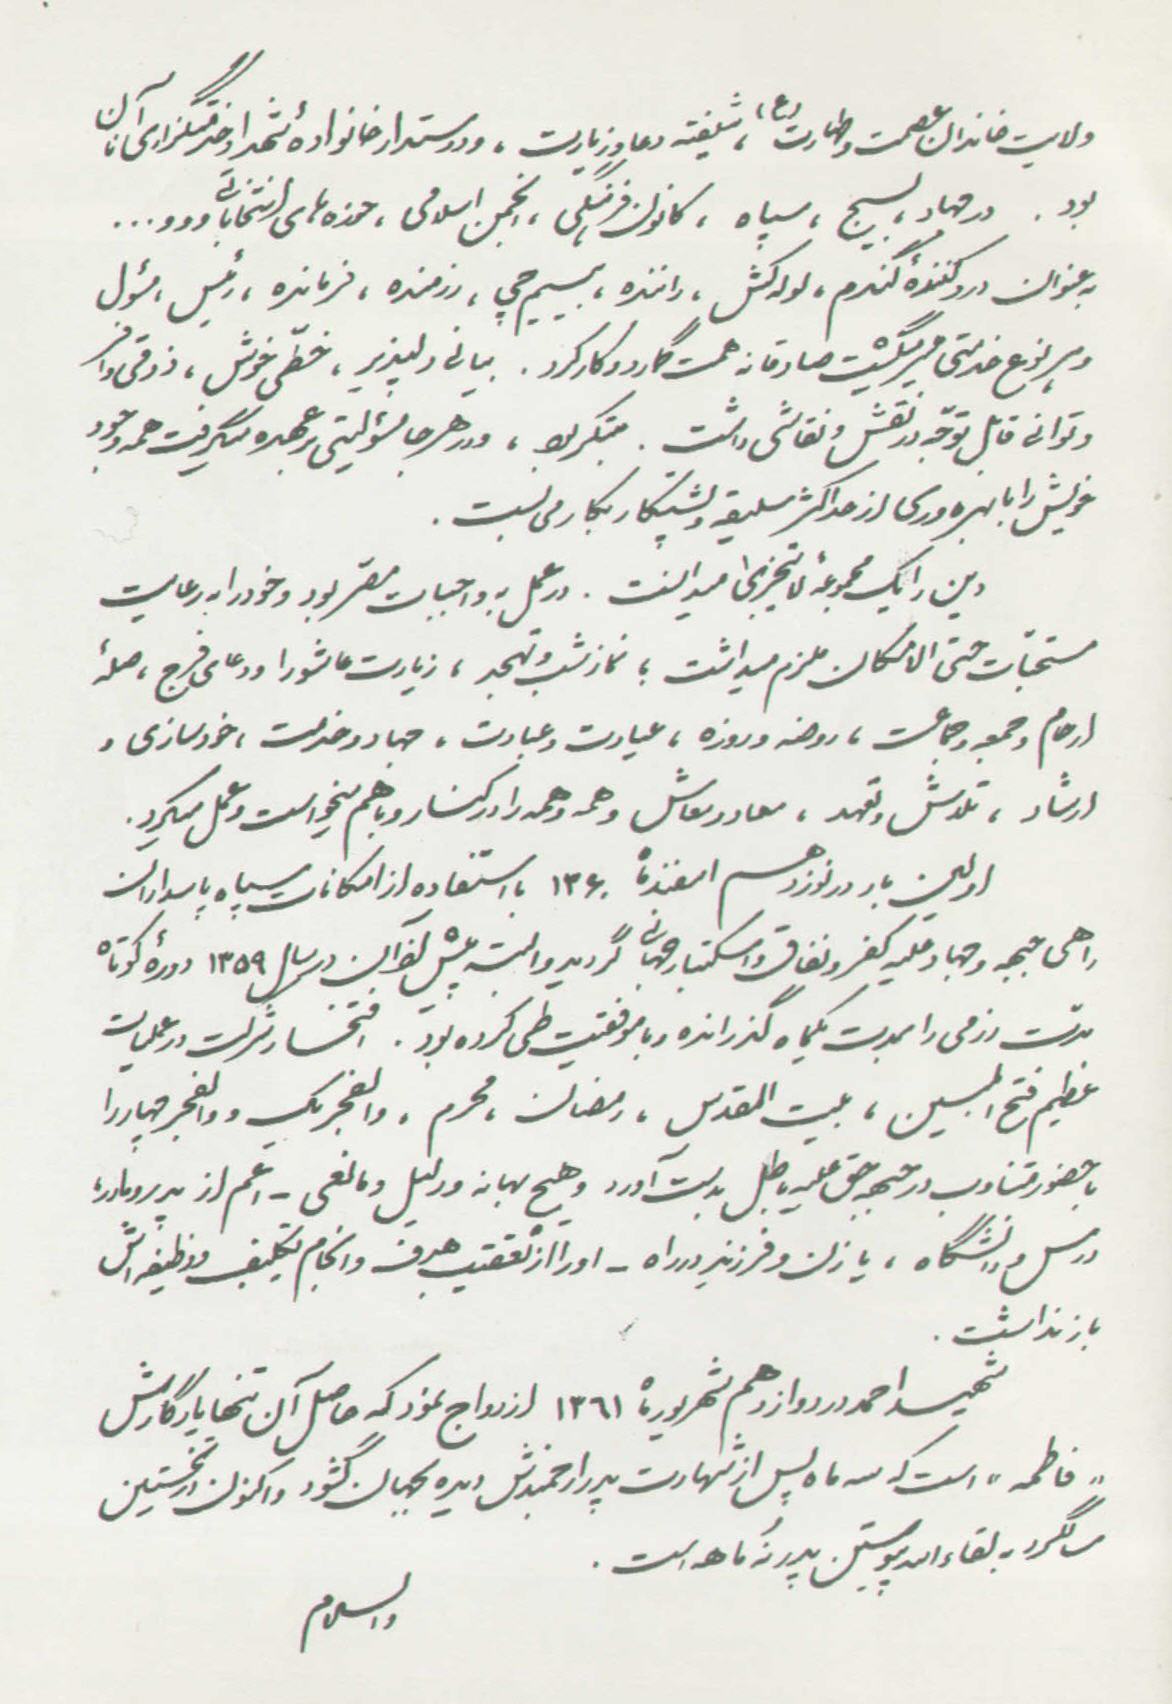 ولایت خاندان عصمت و طهارت (ع)، شیفته دعا و زیارت، و دوستدار خانوادهٔ شهدا و خدمتگزاری آنان
بود. در جهاد، بسیج، سپاه، کانون فرهنگی، انجمن اسلامی، حوزه‌های انتخاباتی و و و ...
به عنوان درو کنندهٔ گندم، لوله کش، راننده، بیسیم چی، رزمنده، فرمانده، رئیس، مسئول
و هر نوع خدمتی میسر میگشت صادقانه همت گمارد و کار کرد. بیانی دلپذیر، خطّی خوش، ذوقی وافر
و توانی قابل توجّه در نقش و نقاشی داشت. مبتکر بود، و در هر جا مسؤلیتی بر عهده میگرفت همه وجود
خویش را با بهره وری از حداکثر سلیقه و پشتکار بکار می بست.
دین را یک مجموعهٔ لایتجزی میدانست. در عمل به واجبات مصرّ بود و خود را به رعایت
مستحبّات حتی الامکان ملزم میداشت؛ نماز شب و تهجد، زیارت عاشورا و دعای فرج، صلهٔ
ارحام و جمعه و جماعت، روضه و روزه، عیادت و عبادت، جهاد و خدمت، خودسازی و
ارشاد، تلاش و تعهد، معاد و معاش و همه و همه را در کنار و با هم میخواست و عمل میکرد.
اولین بار در نوزدهم اسفندماه ۱۳۶۰ با استفاده از امکانات سپاه پاسداران
راهی جبهه و جهاد علیه کفر و نفاق و استکبار جهانی گردید و البته پیش از آن در سال ۱۳۵۹ دورهٔ کوتاه
مدّت رزمی را بمدت یکماه گذرانده و با موفقیت طی کرده بود. افتخار شرکت در عملیات
عظیم فتح المبین، بیت المقدس، رمضان، محرم، والفجر یک و والفجر چهار را
با حضور متناوب در جبهه حق علیه باطل بدست آورد و هیچ بهانه و دلیل و مانعی - اعم از پدر و مادر،
درس و دانشگاه، یا زن و فرزند در راه - او را از تعقیب هدف و انجام تکلیف و وظیفه اش
باز نداشت.
شهید احمد در دوازدهم شهریورماه ۱۳۶۱ ازدواج نمود که حاصل آن تنها یادگارش
"فاطمه" است که سه ماه پس از شهادت پدر ارجمندش دیده بجهان گشود و اکنون در نخستین
سالگرد به لقاء الله پیوستن پدر نُه ماهه است.
والسلام